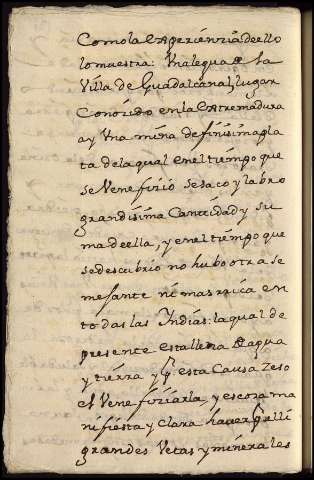 Como la experiençia de ello
lo muestra: Una legua de la
Villa de Guadalcanal, lugar
Conoçido en la Extremadura
ay Una mina de finissima pla
ta de la qual en el tiempo que
se Venefizio se saco y labro
grandissima Cantidad y su
ma de ella, y en el tiempo que
se descubrio no hubo otra se
mejante ni mas rrica en
todas las Indias: la qual de
presente esta llena de agua
y tierra y por esta Causa zeso
el Venefiziarla, y es cosa ma
nifiesta y clara haver por alli
grandes Vetas y minerales